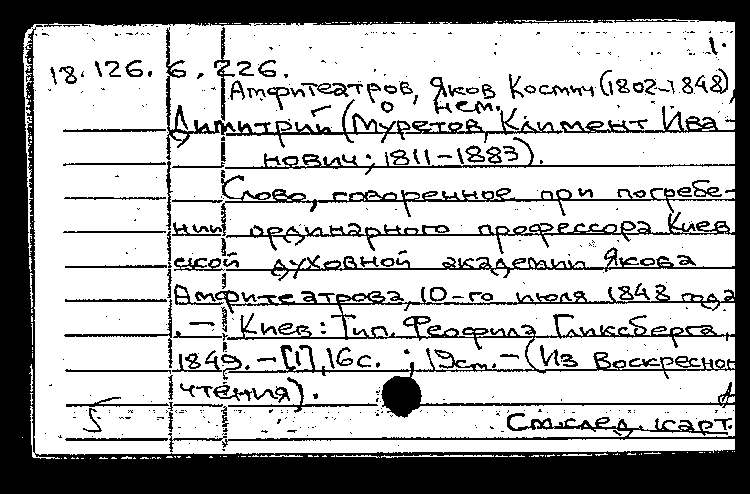 1.
18.126.6.226.
Амфитеатров, Яков Космич (1802-1848),
о нем.
Димитрий (Муретов, Климент Ива-
нович; 1811-1883).
Слово, говоренное при погребе-
нии ординарного профессора Киев
ской духовной академии Якова
Амфитеатрова, 10-го июля 1848 года
. — Киев: Тип. Феофила Гликсберга,
1849. — [1], 16 с. ; 19 см. — (Из Воскресно
чтения).
См. след. карт.